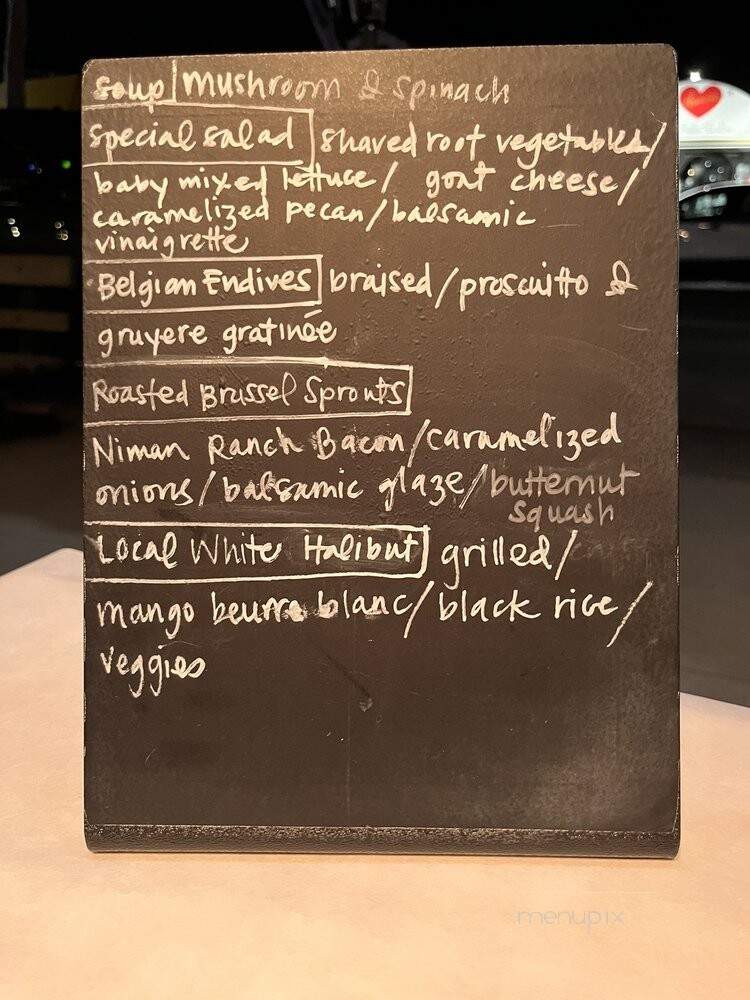 soup | mushroom & spinach
special salad | shaved root vegetables/
baby mixed lettuce/ goat cheese/
caramelized pecan/balsamic
vinaigrette
Belgian Endives | braised/proscuitto &
gruyere gratinée
Roasted Brussel Sprouts
Niman Ranch Bacon/caramelized
onions/balsamic glaze/butternut
squash
Local White Halibut | grilled/
mango beurre blanc/black rice/
veggies
menupix